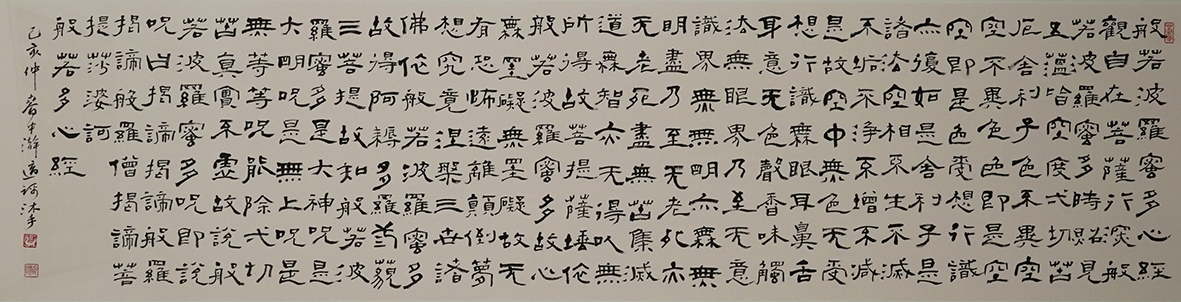 般若波羅蜜多心經
觀自在菩薩行深般
若波羅蜜多時照見
五蘊皆空度一切苦
厄舍利子色不異空
空不異色色即是空
空即是色受想行識
亦復如是舍利子是
諸法空相不生不滅
不垢不淨不增不減
是故空中無色无受
想行識無眼耳鼻舌
身意无色聲香味觸
法無眼界乃至无意
識界無无明亦無无
明盡乃至无老死亦
无老死盡無苦集滅
道無智亦无得以無
所得故菩提薩埵依
般若波羅蜜多故心
無罣礙無罣礙故无
有恐怖遠離顛倒夢
想究竟涅槃三世諸
佛依般若波羅蜜多
故得阿耨多羅三藐
三菩提故知般若波
羅蜜多是大神呪是
大明呪是無上呪是
無等等呪能除一切
苦真實不虛故說般
若波羅蜜多呪即說
呪曰揭諦揭諦般羅
揭諦般羅僧揭諦菩
提莎婆訶
般若多心經
己亥仲春沐手